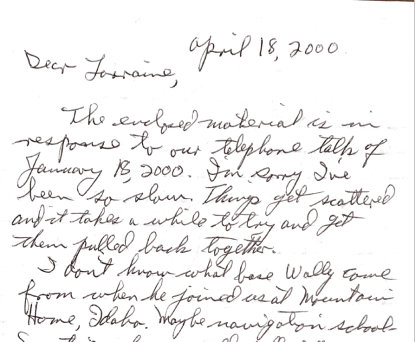 April 18, 2000
Dear Lorraine,
The enclosed material is in
response to our telephone talk of
January 18, 2000. I'm sorry I've
been so slow. Things get scattered
and it takes a while to try and get
them pulled back together.
I don't know what base Wally came
from when he joined us at Mountain
Home, Idaho. Maybe navigation school-